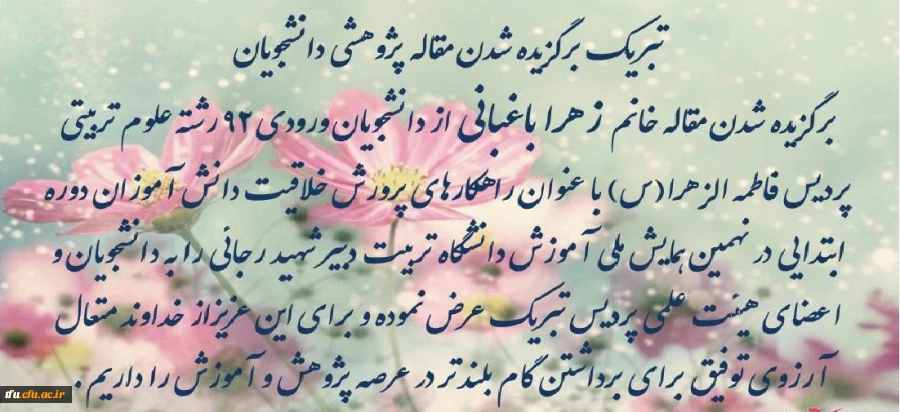 تبریک برگزیده شدن مقاله پژوهشی دانشجویان
برگزیده شدن مقاله خانم زهرا باغبانی از دانشجویان ورودی ۹۲ رشته علوم تربیتی
پردیس فاطمه الزهرا (س) با عنوان راهکارهای پرورش خلاقیت دانش آموزان دوره
ابتدایی در نهمین همایش ملی آموزش دانشگاه تربیت دبیر شهید رجائی را به دانشجویان و
اعضای هیئت علمی پردیس تبریک عرض نموده و برای این عزیز از خداوند متعال
آرزوی توفیق برای برداشتن گام بلندتر در عرصه پژوهش و آموزش را داریم .
tfu.cfu.ac.ir